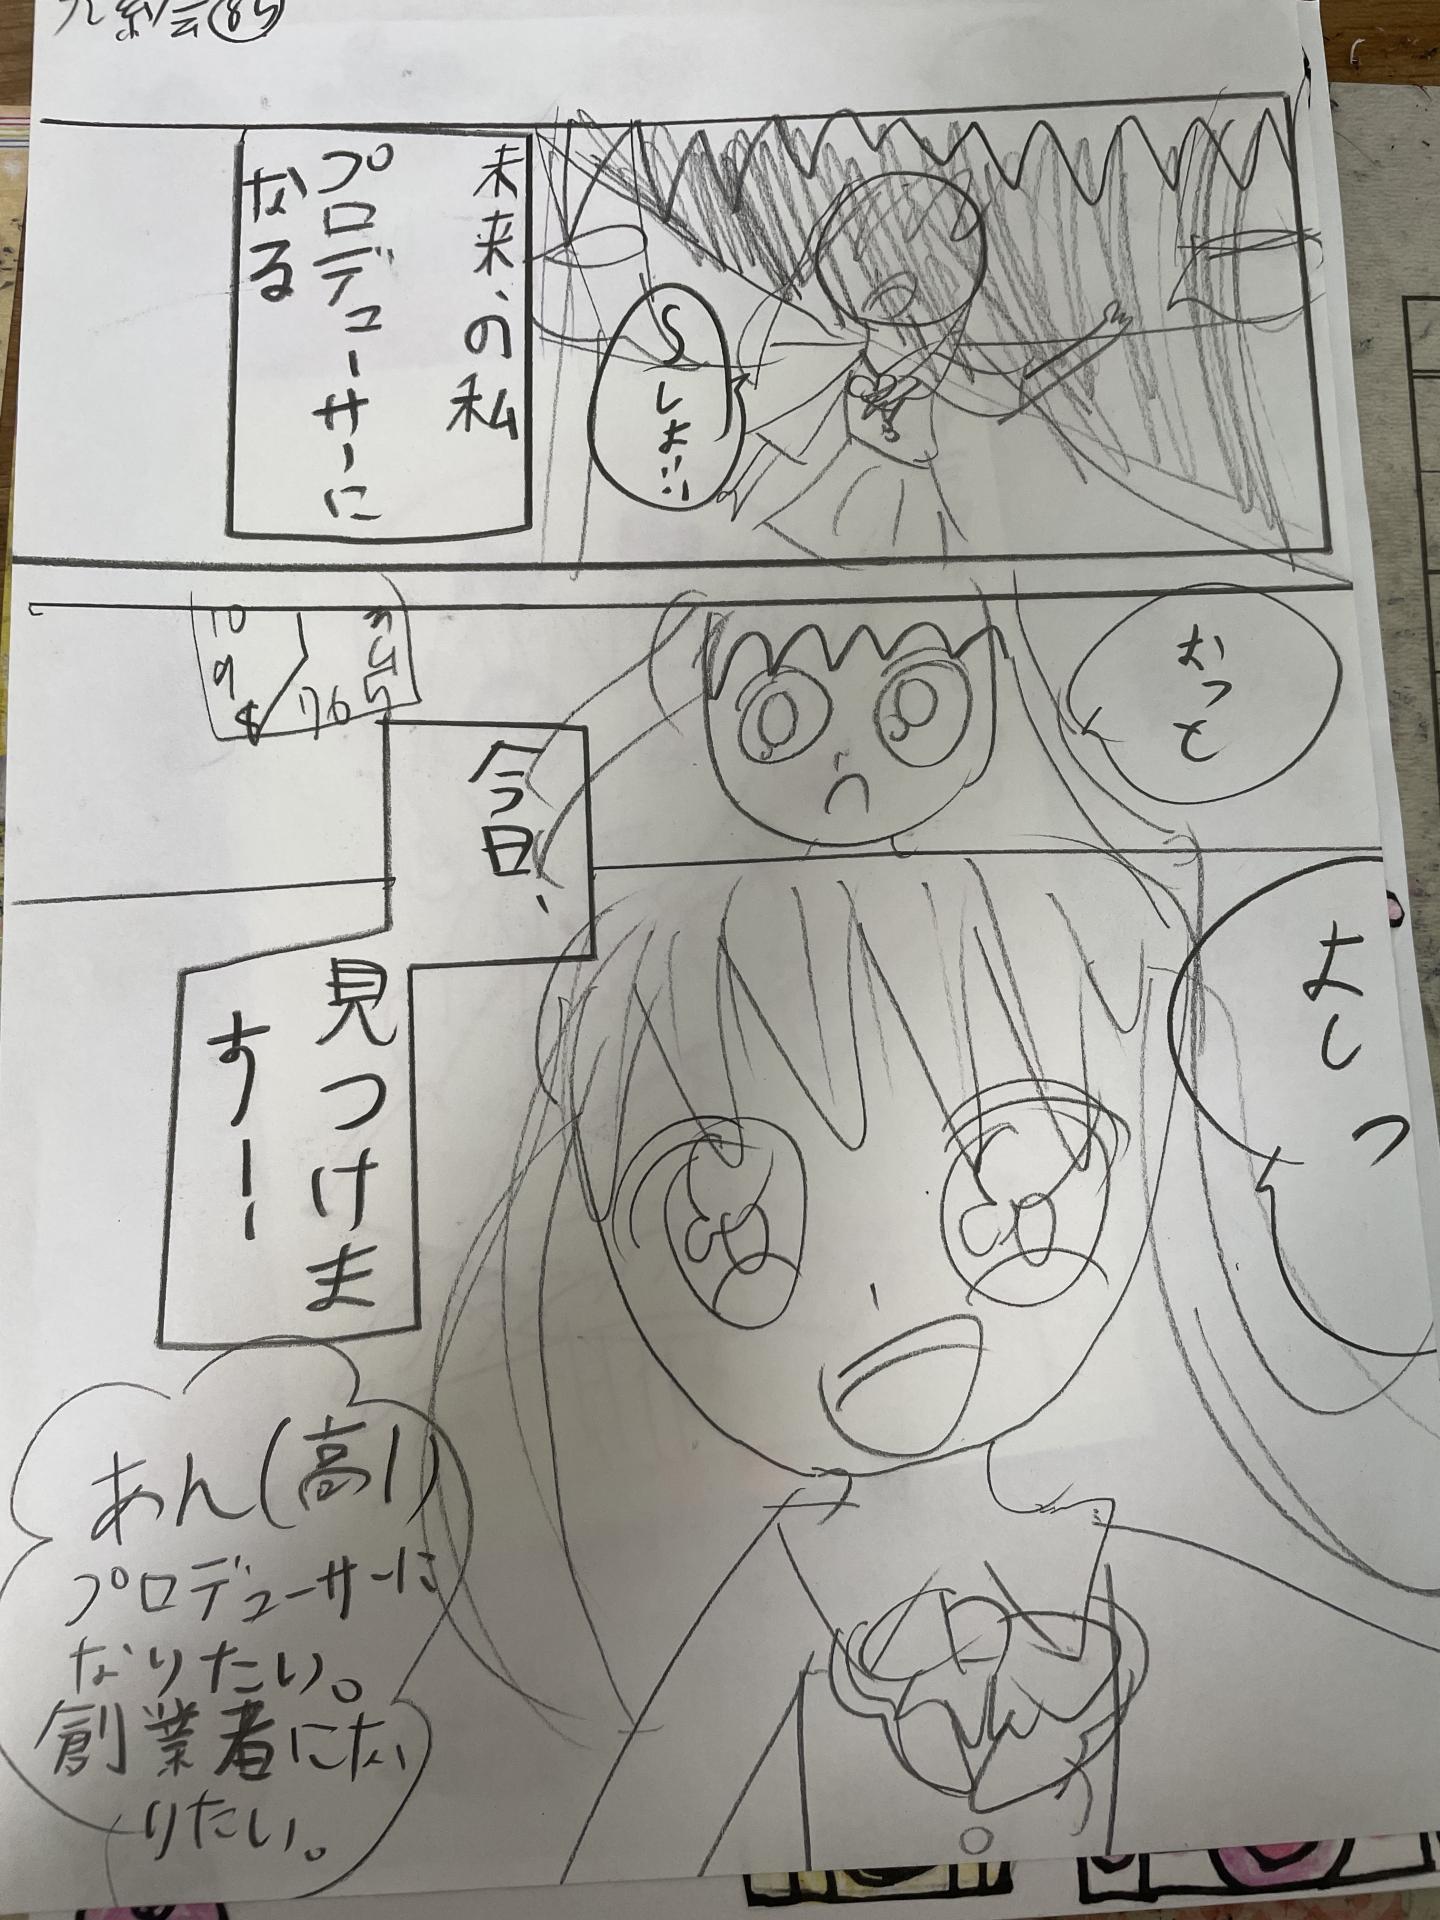 未来、の私
プロデューサーに
なる
しよ!!
おっと
10
9
8
7 6
今日、
見つけま
すー!
よしっ
あん(高1)
プロデューサーに
なりたい。
創業者にな
りたい。